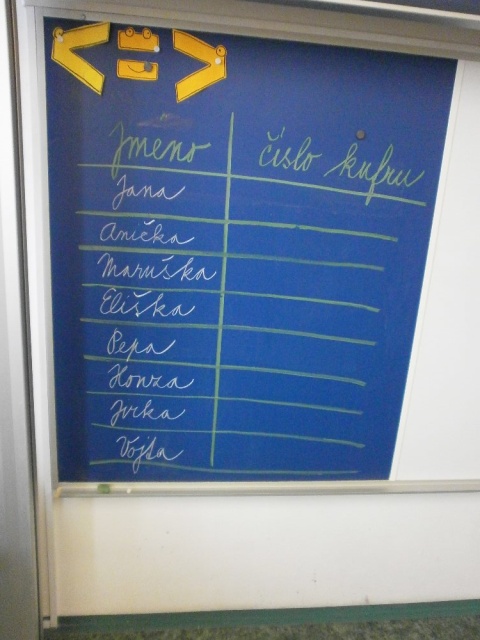 < = >
Jméno číslo kufru
Jana
Anička
Maruška
Eliška
Pepa
Honza
Jirka
Vojta